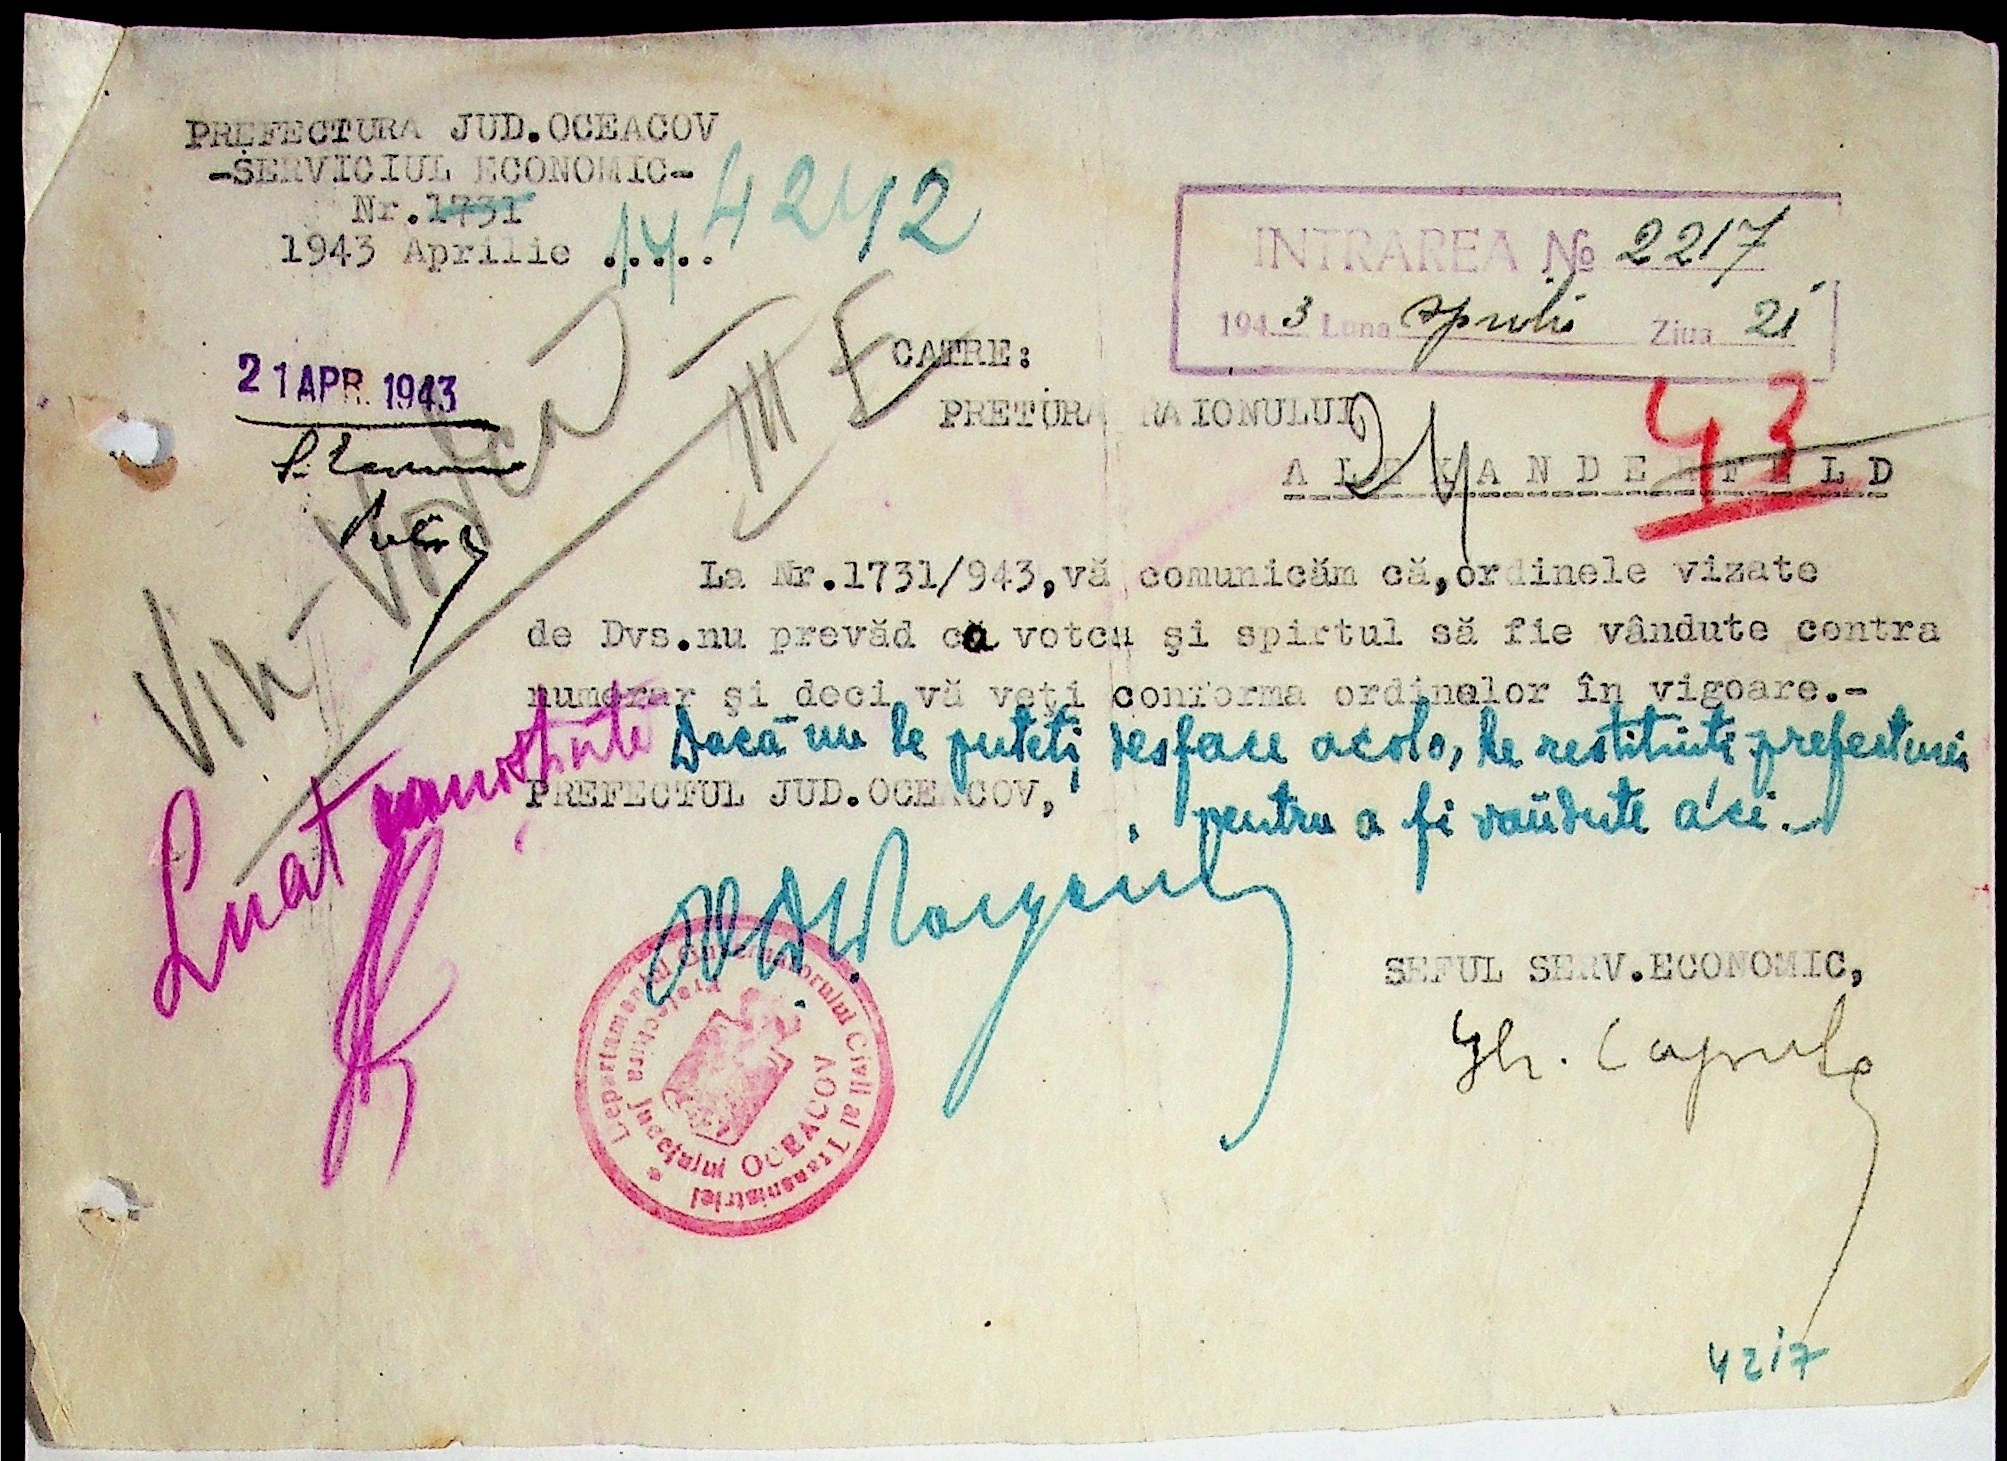 PREFECTURA JUD.OCEACOV
-SERVICIUL ECONOMIC-
Nr.1731 4242
1943 Aprilie .14...
INTRAREA No 2217
1943 Luna aprilie Ziua 21
21 APR. 1943
CATRE:
PRETURA RAIONULUI
43
ALEXANDERFELD
III E
Vin - Votcă
La Nr.1731/943,vă comunicăm că,ordinele vizate
de Dvs.nu prevăd ca votca şi spirtul să fie vândute contra
numerar şi deci vă veţi conforma ordinelor în vigoare.-
Dacă nu le puteţi desface acolo, le restituiţi prefecturei
pentru a fi vândute aci.
Luat cunoştinţă
PREFECTUL JUD.OCEACOV,
Departamentul Guvernatorului Civil al Transnistriei
Prefectura Judeţului OCEACOV
SEFUL SERV.ECONOMIC,
Gh.
4217